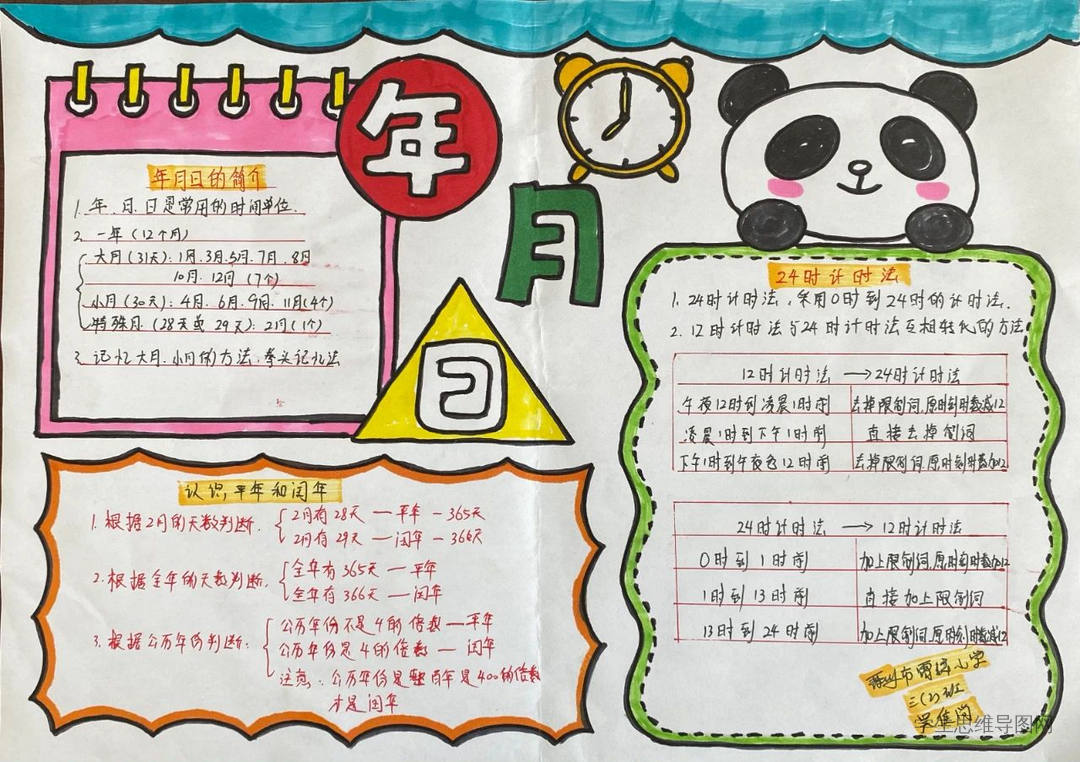 年
月
日
年月日的简介
1. 年、月、日是常用的时间单位.
2. 一年（12个月）
大月（31天）：1月、3月、5月、7月、8月
10月、12月（7个）
小月（30天）：4月、6月、9月、11月（4个）
特殊月（28天或29天）：2月（1个）
3. 记忆大月、小月的方法：拳头记忆法
认识平年和闰年
1. 根据2月的天数判断.
2月有28天 — 平年 — 365天
2月有29天 — 闰年 — 366天
2. 根据全年的天数判断.
全年有365天 — 平年
全年有366天 — 闰年
3. 根据公历年份判断：
公历年份不是4的倍数 — 平年
公历年份是4的倍数 — 闰年
注意：公历年份是整百年是400的倍数
才是闰年
24时计时法
1. 24时计时法，采用0时到24时的计时法.
2. 12时计时法与24时计时法互相转化的方法
12时计时法 → 24时计时法
午夜12时到凌晨1时前 去掉限制词,原时刻时数减12
凌晨1时到下午1时前 直接去掉制词
下午1时到午夜12时前 去掉限制词,原时刻时数加12
24时计时法 → 12时计时法
0时到1时前 加上限制词,原时刻时数加12
1时到13时前 直接加上限制词
13时到24时前 加上限制词,原时刻时数减12
市 小学
三(2)班
学生思维导图网